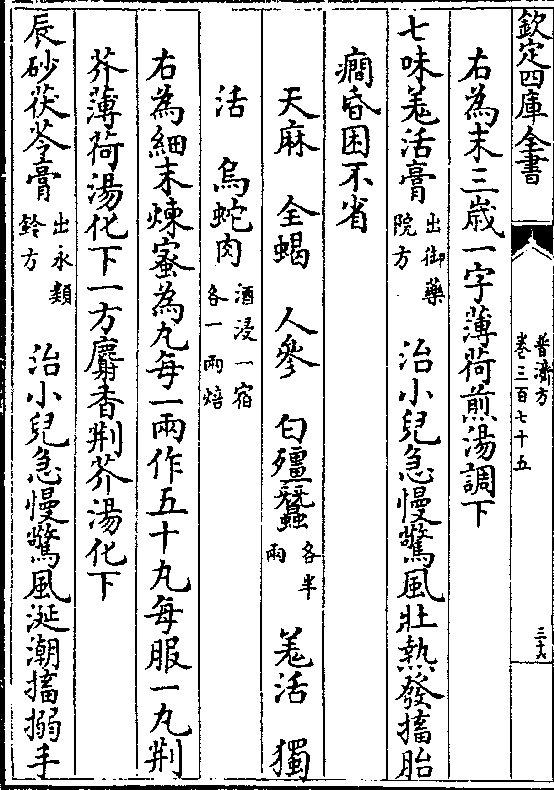 欽定四庫全書
普濟方
卷三百七十五
三十六
右為末三歳一字薄荷煎湯調下
七味羗活膏出御藥院方 治小兒急慢驚風壯熱發搐胎
癎昏困不省
天麻 全蝎 人參 白殭蠶各半兩 羗活 獨
活 烏蛇肉酒浸一宿各一兩焙
右為細末煉蜜為丸每一兩作五十丸每服一丸荆
芥薄荷湯化下一方麝香荆芥湯化下
辰砂茯苓膏出永類鈐方 治小兒急慢驚風涎潮搐搦手